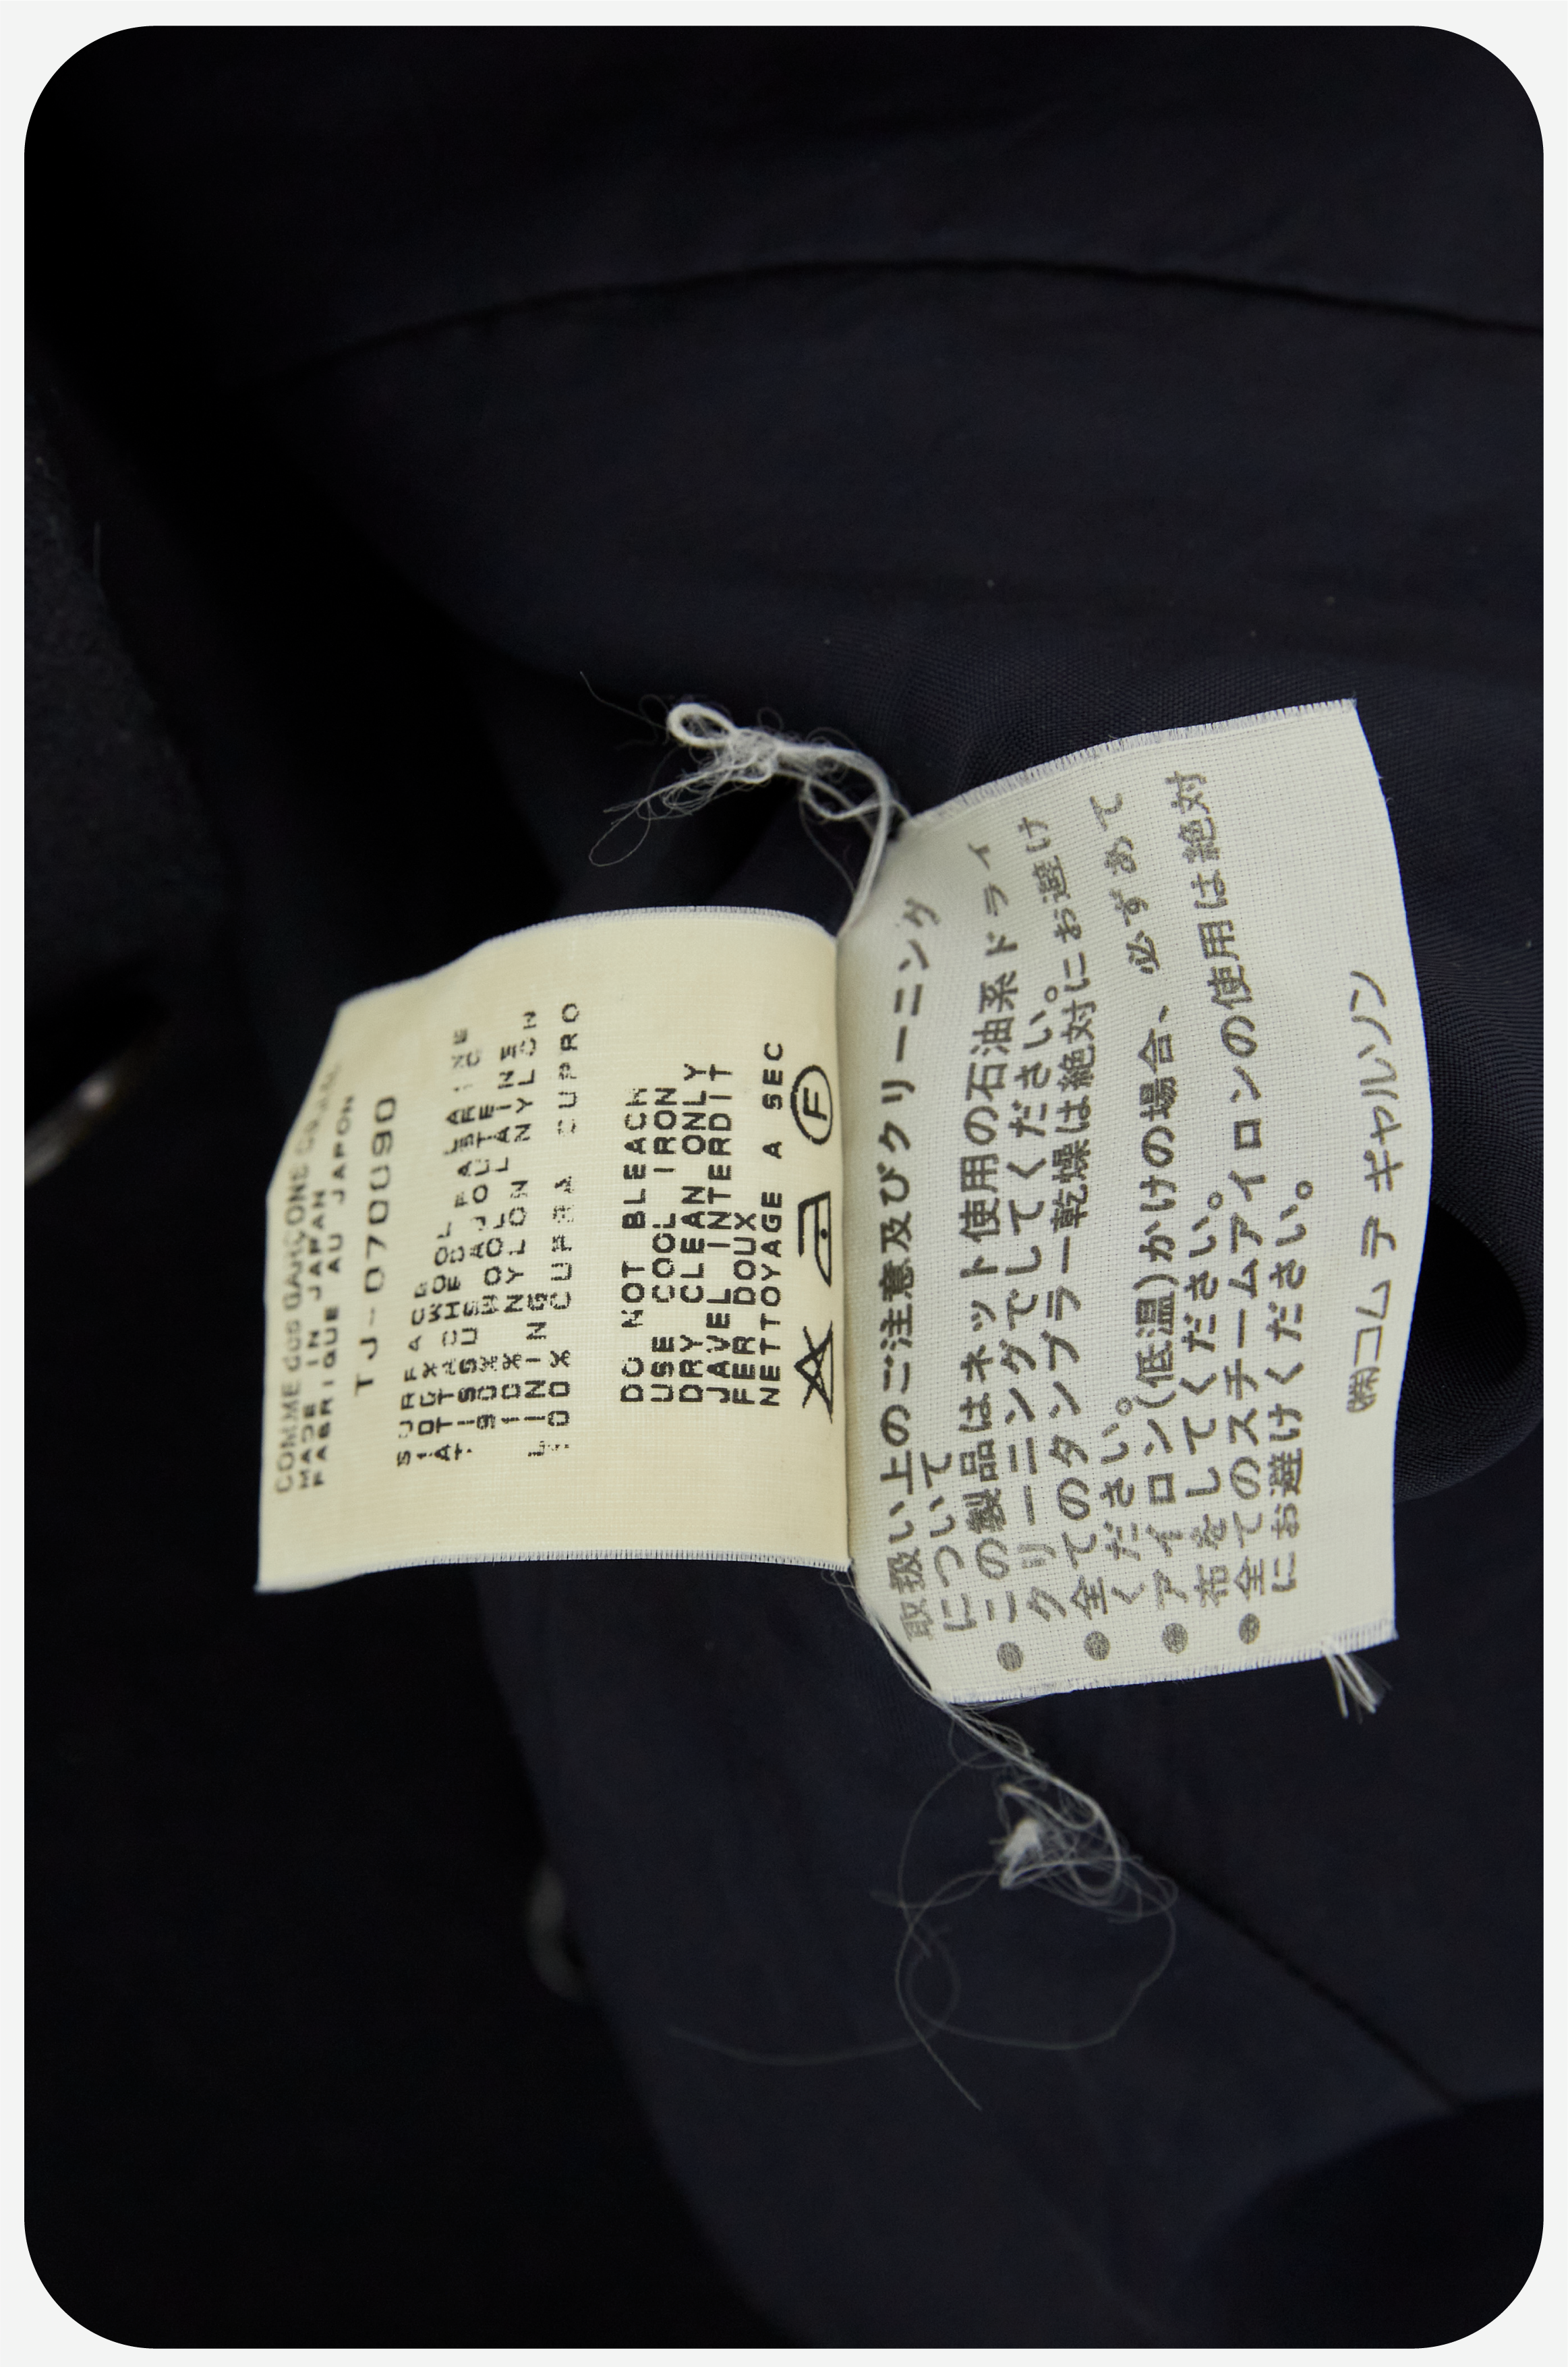 COMME des GARCONS
MADE IN JAPAN
FABRIQUE AU JAPON
TJ-070090
SURFACE
100% WOOL LAINE
ATTACHED
TISSU AJOUTE
90% WOOL LAINE
10% NYLON NYLON
LINING
100% CUPRA CUPRO
DO NOT BLEACH
USE COOL IRON
DRY CLEAN ONLY
JAVEL INTERDIT
FER DOUX
NETTOYAGE A SEC
F
取扱い上のご注意及びクリーニング
について
●この製品はネット使用の石油系ドライ
クリーニングでしてください。
●全てのタンブラー乾燥は絶対にお避け
ください。
●アイロン(低温)かけの場合、必ずあて
布をしてください。
●全てのスチームアイロンの使用は絶対
にお避けください。
㈱コム デ ギャルソン